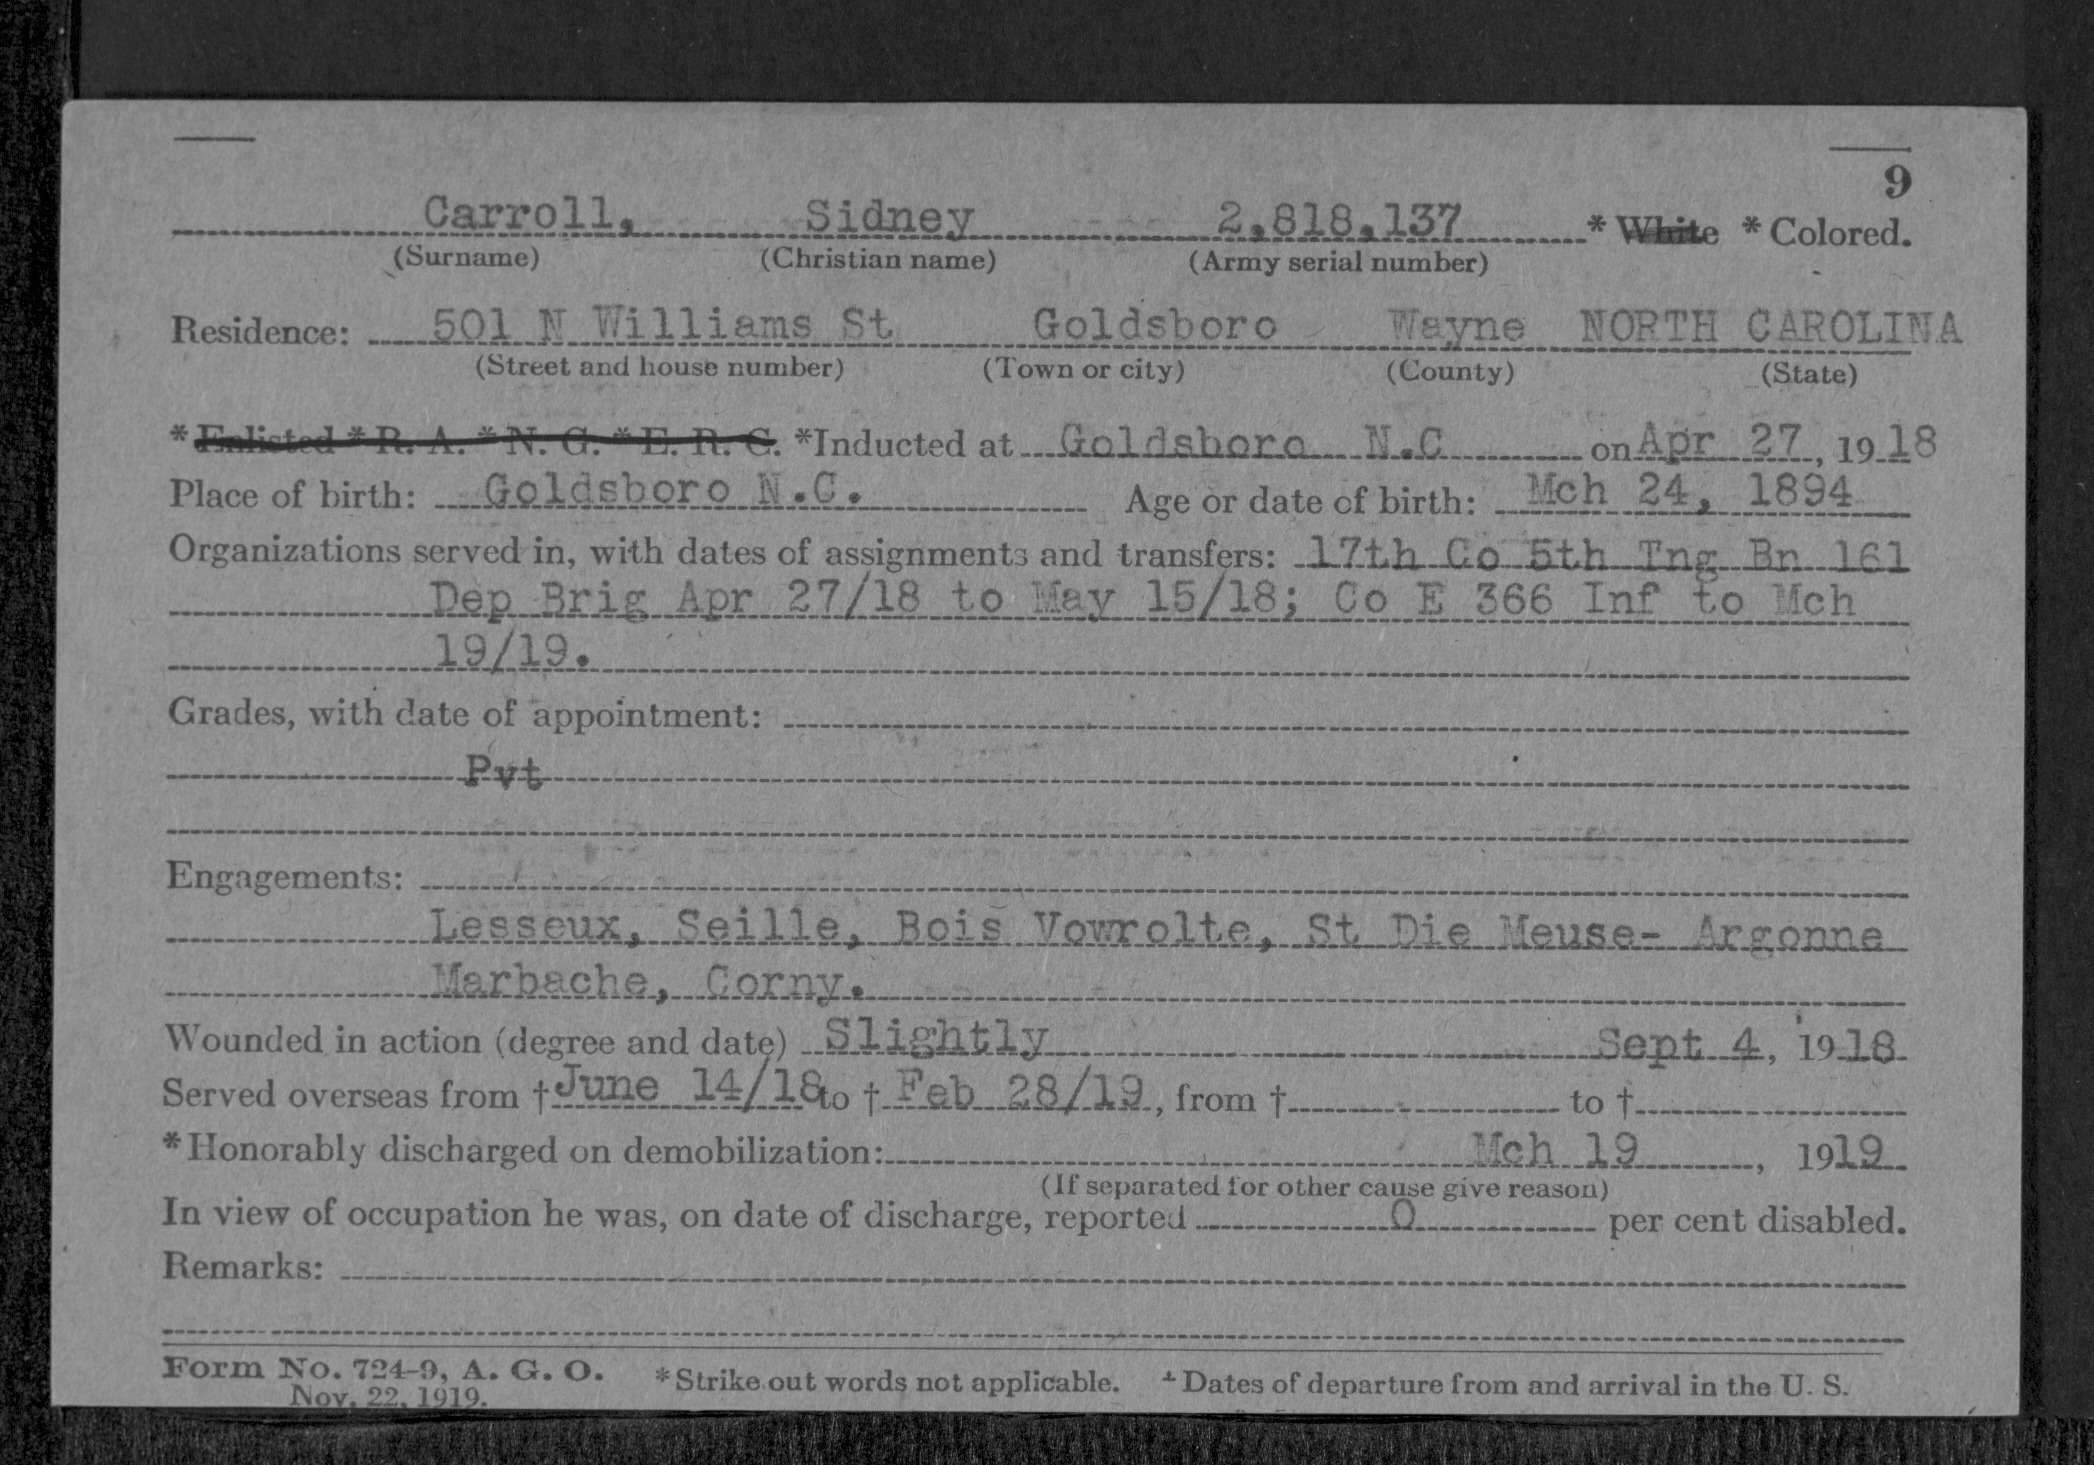 9
Carroll, Sidney 2,818,137 * White * Colored.
(Surname) (Christian name) (Army serial number)
Residence: 501 N Williams St Goldsboro Wayne NORTH CAROLINA
(Street and house number) (Town or city) (County) (State)
* Enlisted * R. A. * N. G. * E. R. C. *Inducted at Goldsboro N.C on Apr 27, 1918
Place of birth: Goldsboro N.C. Age or date of birth: Mch 24, 1894
Organizations served in, with dates of assignments and transfers: 17th Co 5th Tng Bn 161
Dep Brig Apr 27/18 to May 15/18; Co E 366 Inf to Mch
19/19.
Grades, with date of appointment:
Pvt
Engagements:
Lesseux, Seille, Bois Vowrolte, St Die Meuse- Argonne
Marbache, Corny.
Wounded in action (degree and date) Slightly Sept 4, 1918
Served overseas from † June 14/18 to † Feb 28/19, from † to †
* Honorably discharged on demobilization: Mch 19, 1919
(If separated for other cause give reason)
In view of occupation he was, on date of discharge, reported 0 per cent disabled.
Remarks:
Form No. 724-9, A. G. O. * Strike out words not applicable. † Dates of departure from and arrival in the U. S.
Nov. 22, 1919.